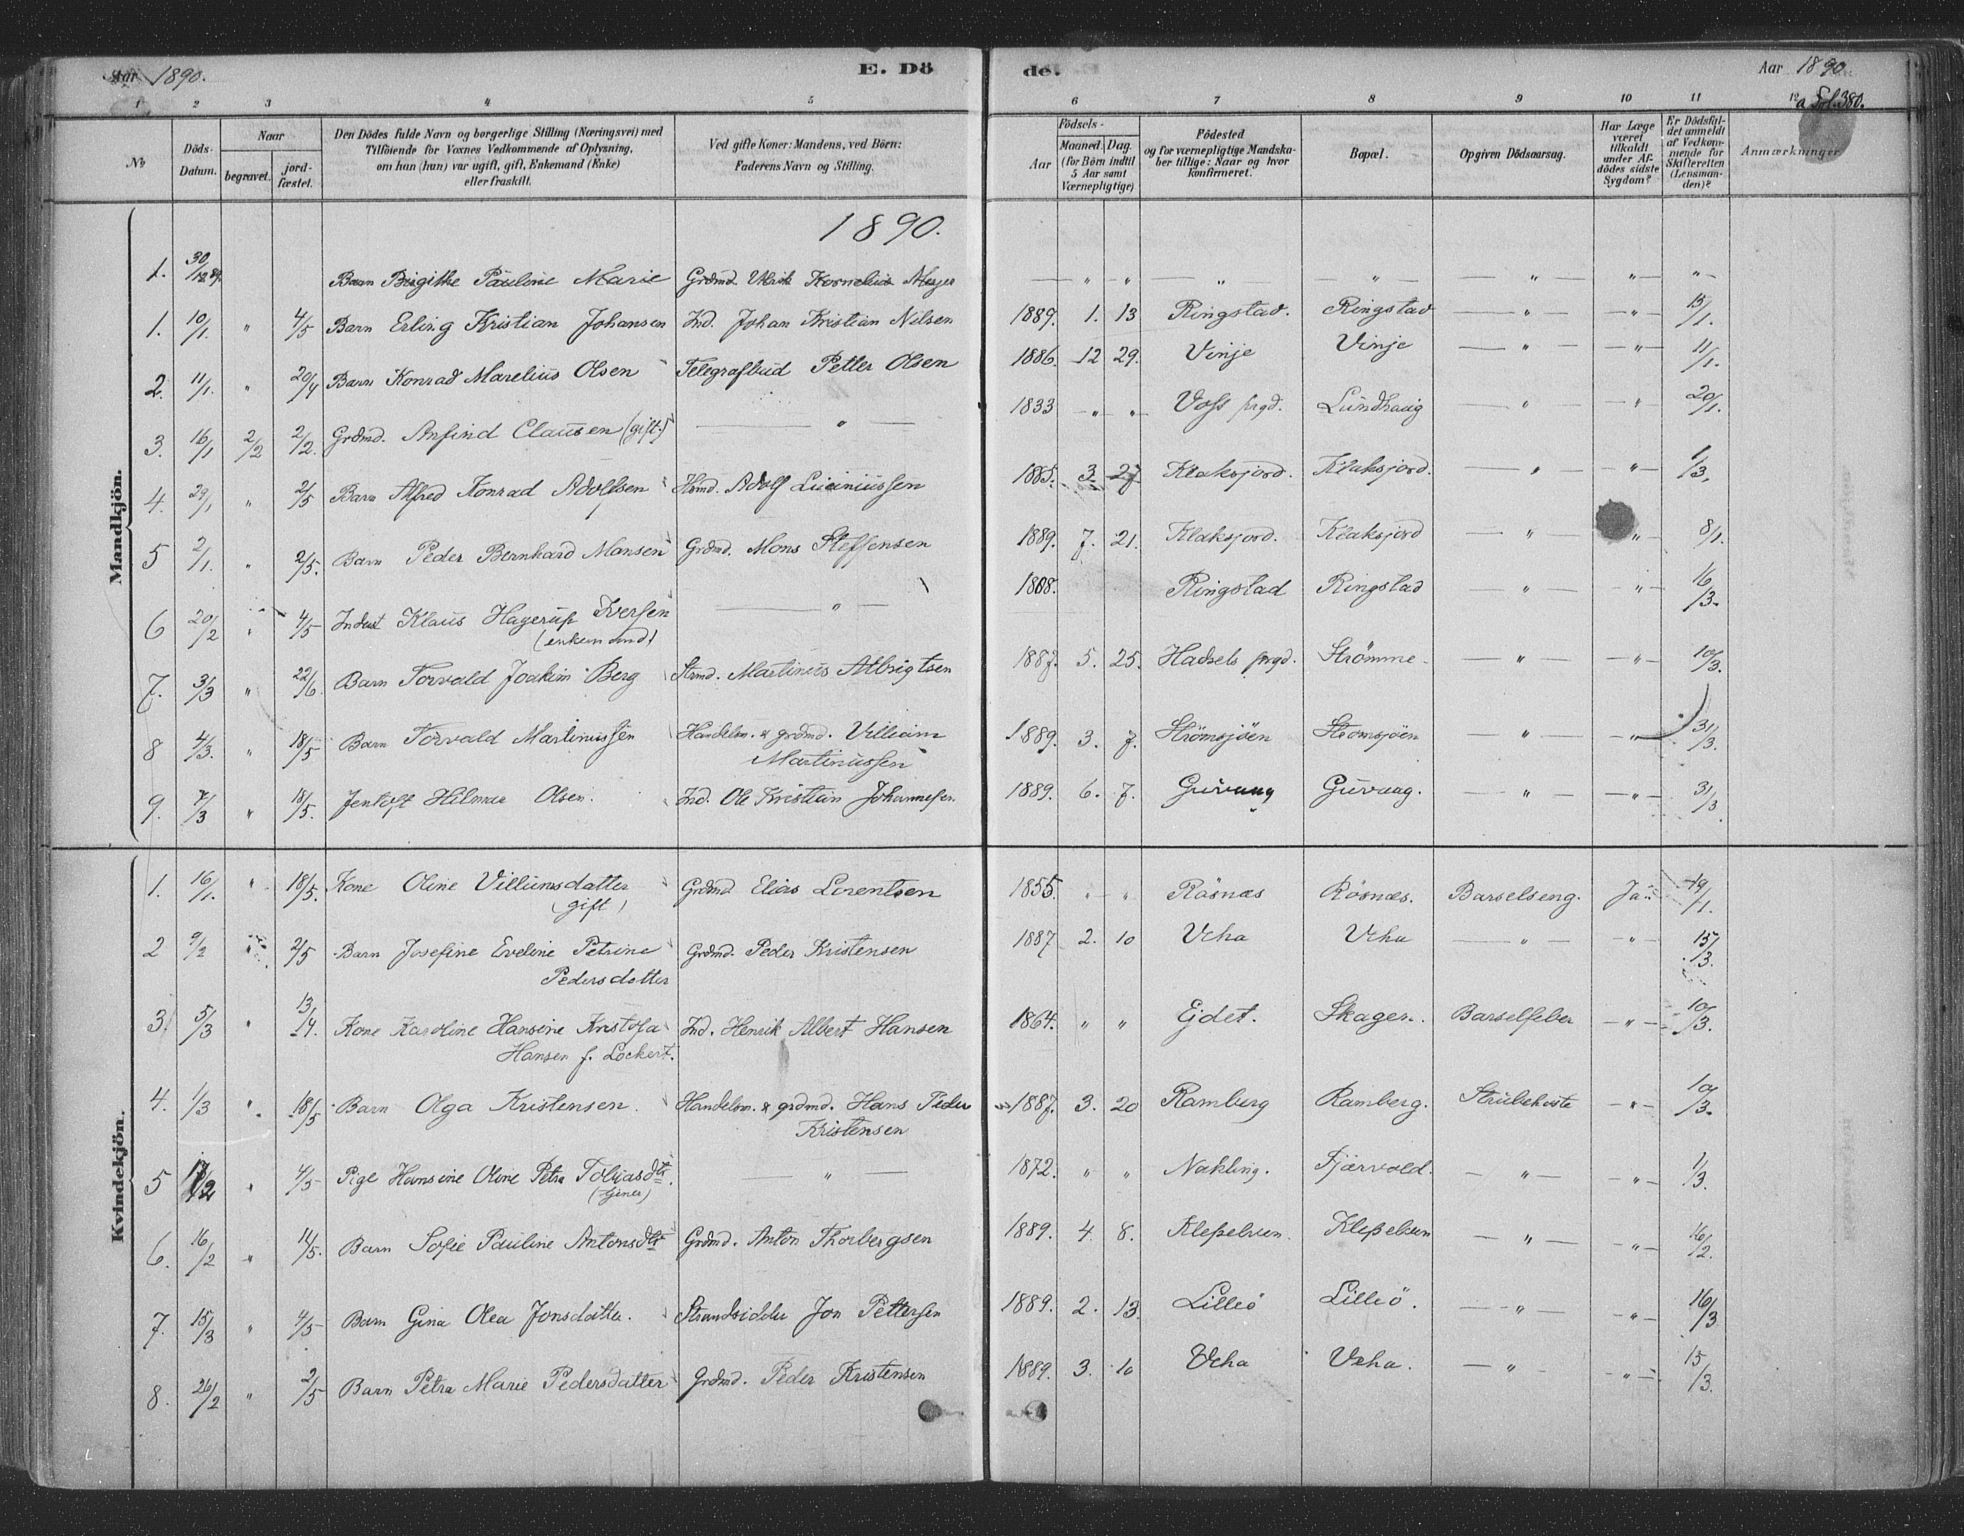 Aar 1890. E. Dö de. Aar 1890
1 2 3 4 5 6 7 8 9 10 11 12 a Fol. 380.
No Döds-Datum. Naar begravet. jord-fæstet. Den Dödes fulde Navn og borgerlige Stilling (Næringsvei) med Tilföiende for Voxnes Vedkommende af Oplysning, om han (hun) var ugift, gift, Enkemand (Enke) eller fraskilt. Ved gifte Koner: Mandens, ved Börn: Faderens Navn og Stilling. Födsels- Aar Maaned. Dag. (for Börn indtil 5 Aar samt Værnepligtige) Födested og for værnepligtige Mandska-ber tillige: Naar og hvor konfirmeret. Bopæl. Opgiven Dödsaarsag. Har Læge været tilkaldt under Af-dödes sidste Sygdom? Er Dödsfal-det anmeldt af Vedkom-mende for Skifteretten (Lensman-den)? Anmærkninger
Mandkjön.
1890.
1. 30/12 89. Barn Birgithe Pauline Marie Grdmd. Ulrik Kornelius Meyer — " " — " — " — " — " — " —
1. 10/1. " 4/5 Barn Erling Kristian Johansen Ind. Johan Kristian Nilsen 1889. 1. 13 Ringstad. Ringstad — " — — " — 15/1.
2. 11/1. " 20/4 Barn Konrad Marelius Olsen Telegrafbud Petter Olsen 1886. 12 29. Vinje Vinje — " — — " — 11/1.
3. 16/1 2/2 2/2. Grdmd. Anfind Clausen (gift) — " — 1833 — " " Voss prgd. Lundhaug — " — " — 20/1.
4. 29/1 " 2/5 Barn Alfred Konrad Adolfsen Hsmd. Adolf Luciniussen 1885. 3. 27 Klaksjord. Klaksjord. — " — — " — 1/3.
5 2/1. " 2/5. Barn Peder Bernhard Monsen Grdmd. Mons Steffensen 1889. 7. 21. Klaksjord. Klaksjord — " — " 8/1.
6 20/2 " 4/5 Inderst Klaus Hagerup Iversen — " —
(enkemand) 1808. Ringstad Ringstad — " — — " — 16/3.
7. 3/3 " 22/6 Barn Torvald Joakim Berg Strmd. Martinus Albrigtsen 1887. 5. 25. Hadsels prgd. Strömme — " — — " — 10/3.
8 4/3. " 18/5 Barn Torvald Martinussen Handelsm. & grdmd. Villiam
Martinussen 1889. 3. 7. Strömsjöen Strömsjöen — " — — " — 31/3.
9. 7/3 " 18/5. Jentoft Hilmar Olsen. Ind. Ole Kristian Johannesen 1889. 6. 7. Guvaag Guvaag. — " — — " — 31/3
Kvindekjön.
1. 16/1. " 18/5. Kone Oline Villumsdatter Grdmd Elias Lorentsen 1855. " " Rösnæs Rösnæs. Barselseng. Ja 19/1.
(gift)
2 9/2 " 2/5 Barn Josefine Eveline Petrine Grdmd. Peder Kristensen 1887 2. 10 Veha Veha — " — — " — 15/3.
Pedersdatter
3 5/3 " 13/4. Kone Karoline Hansine Kristofa Ind. Henrik Albert Hansen 1864. " " Ejdet. Skagen. Barselfeber — " — 10/3.
Hansen f. Lockert.
4. 1/3 " 18/5 Barn Olga Kristensen. Handelsm. & grdmd. Hans Peder 1887. 3. 20 Ramberg Ramberg. Strubehoste — " — 10/3.
Kristensen
5 17/2 " 4/5 Pige Hansine Oline Petra Tobiasdtr. — " — 1872. " " Nakling. Fjærvold. — " — — " — 1/3.
6. 16/2 " 11/5. Barn Sofie Pauline Antonsdtr Grdmd. Anton Thorbergsen 1889. 4. 8. — " — — " — 16/2.
7. 15/3 " 4/5 Barn Gina Olea Jonsdatter. Strandsidder Jon Pettersen 1889. 2. 13. Lilleö Lilleö. — " — — " — 16/3
8. 26/2 " 2/5 Barn Petra Marie Pedersdatter Grdmd. Peder Kristensen 1889. 3. 10 Veha Veha. — " — — " — 15/3.